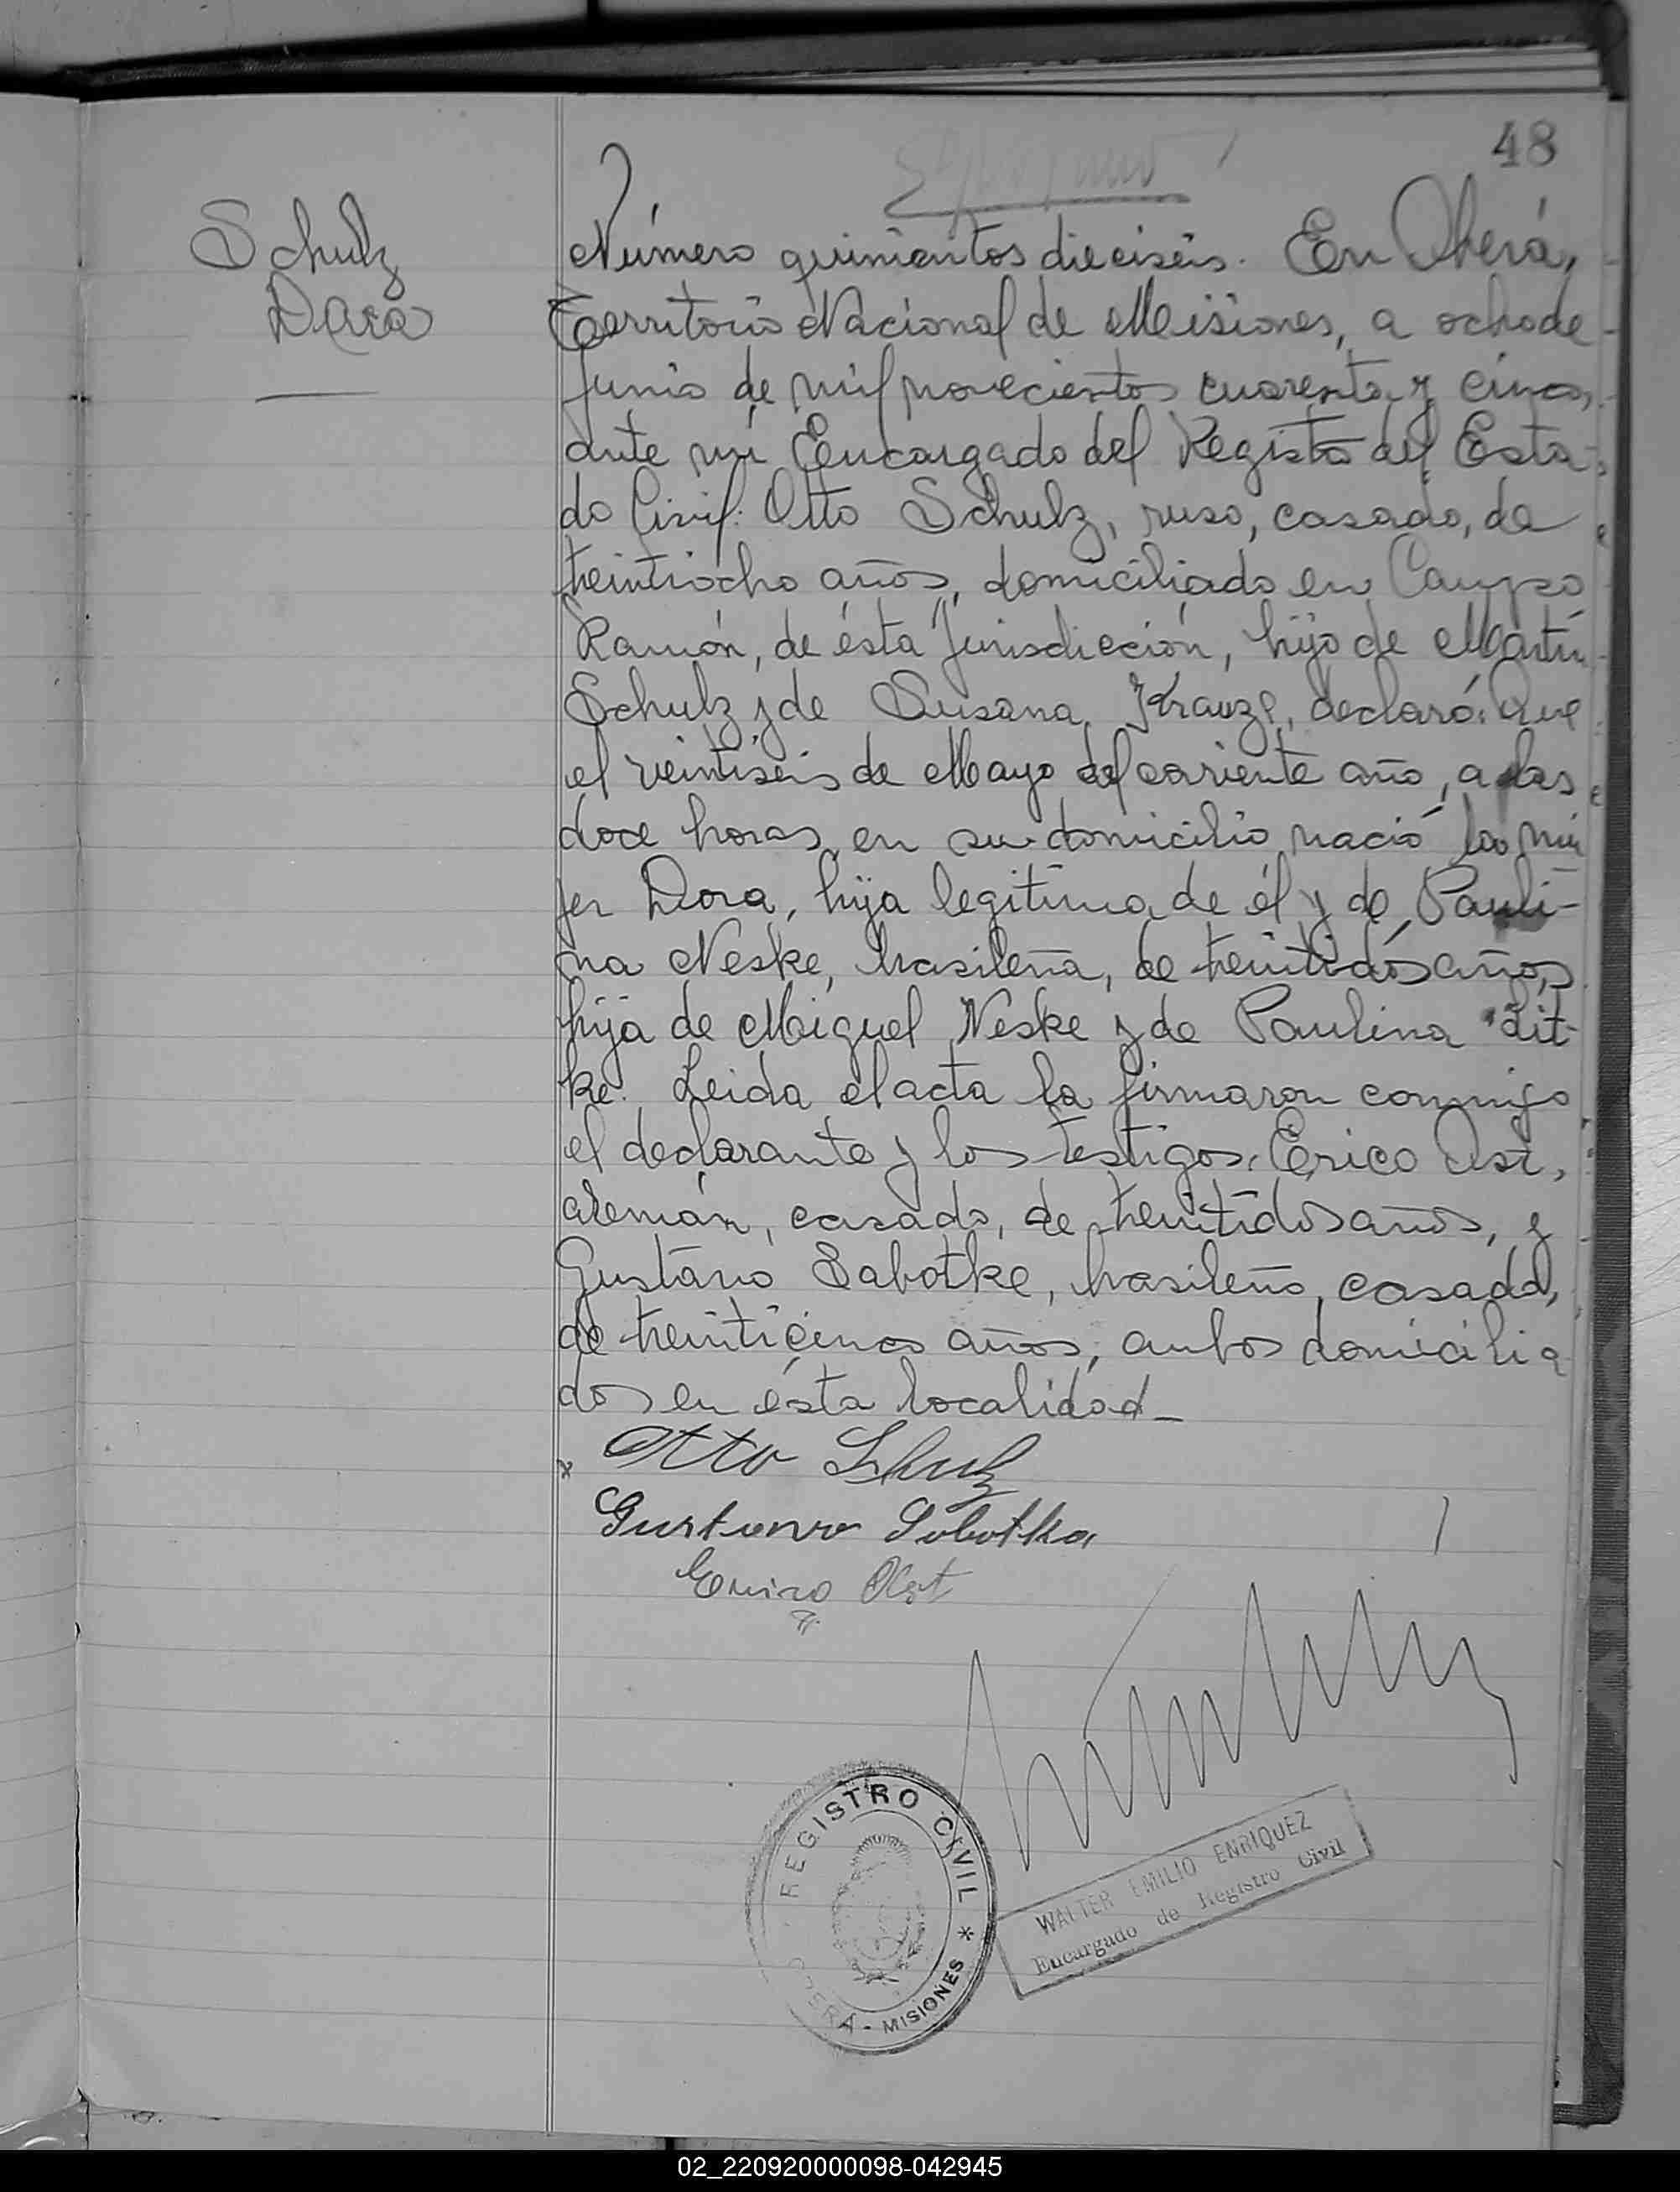 48
Schulz
Dora
Número quinientos dieciséis. En Oberá,
Territorio Nacional de Misiones, a ocho de
Junio de mil novecientos cuarenta y cinco,
ante mí Encargado del Registro del Esta-
do Civil: Otto Schulz, ruso, casado, de
treintiocho años, domiciliado en Campo
Ramón, de ésta Jurisdicción, hijo de Martín
Schulz y de Susana Krauze, declaró: Que
el veintiseis de Mayo del corriente año, a las
doce horas, en su domicilio nació la mu
jer Dora, hija legítima de él y de Pauli-
na Neske, brasileña, de treintidós años,
hija de Miguel Neske y de Paulina Lit-
ke. Leida el acta la firmaron conmigo
el declarante y los testigos: Erico
alemán, casado, de treintidós años, y
Gustavo Sabotke, brasileño, casado,
de treinticinco años; ambos domicilia
dos en ésta localidad_
x Otto Schulz
Gustavo Sobottka
REGISTRO CIVIL * OBERÁ - MISIONES
WALTER EMILIO ENRIQUEZ
Encargado de Registro Civil
02_220920000098-042945